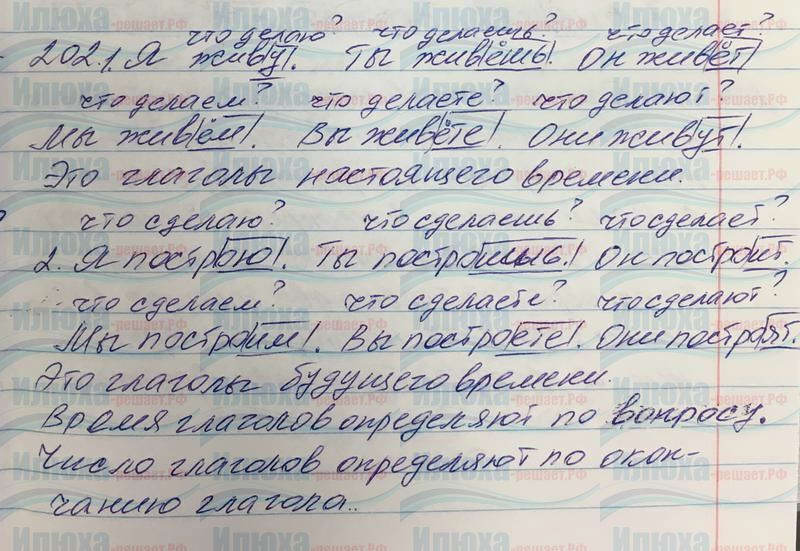 что делаю? что делаешь? что делает?
202.1. Я живу. Ты живёшь. Он живёт.
что делаем? что делаете? что делают?
Мы живём. Вы живёте. Они живут.
Это глаголы настоящего времени.
что сделаю? что сделаешь? что сделает?
2. Я построю. Ты построишь. Он построит.
что сделаем? что сделаете? что сделают?
Мы построим. Вы построете. Они построят.
Это глаголы будущего времени.
Время глаголов определяют по вопросу.
Число глаголов определяют по окон-
чанию глагола.